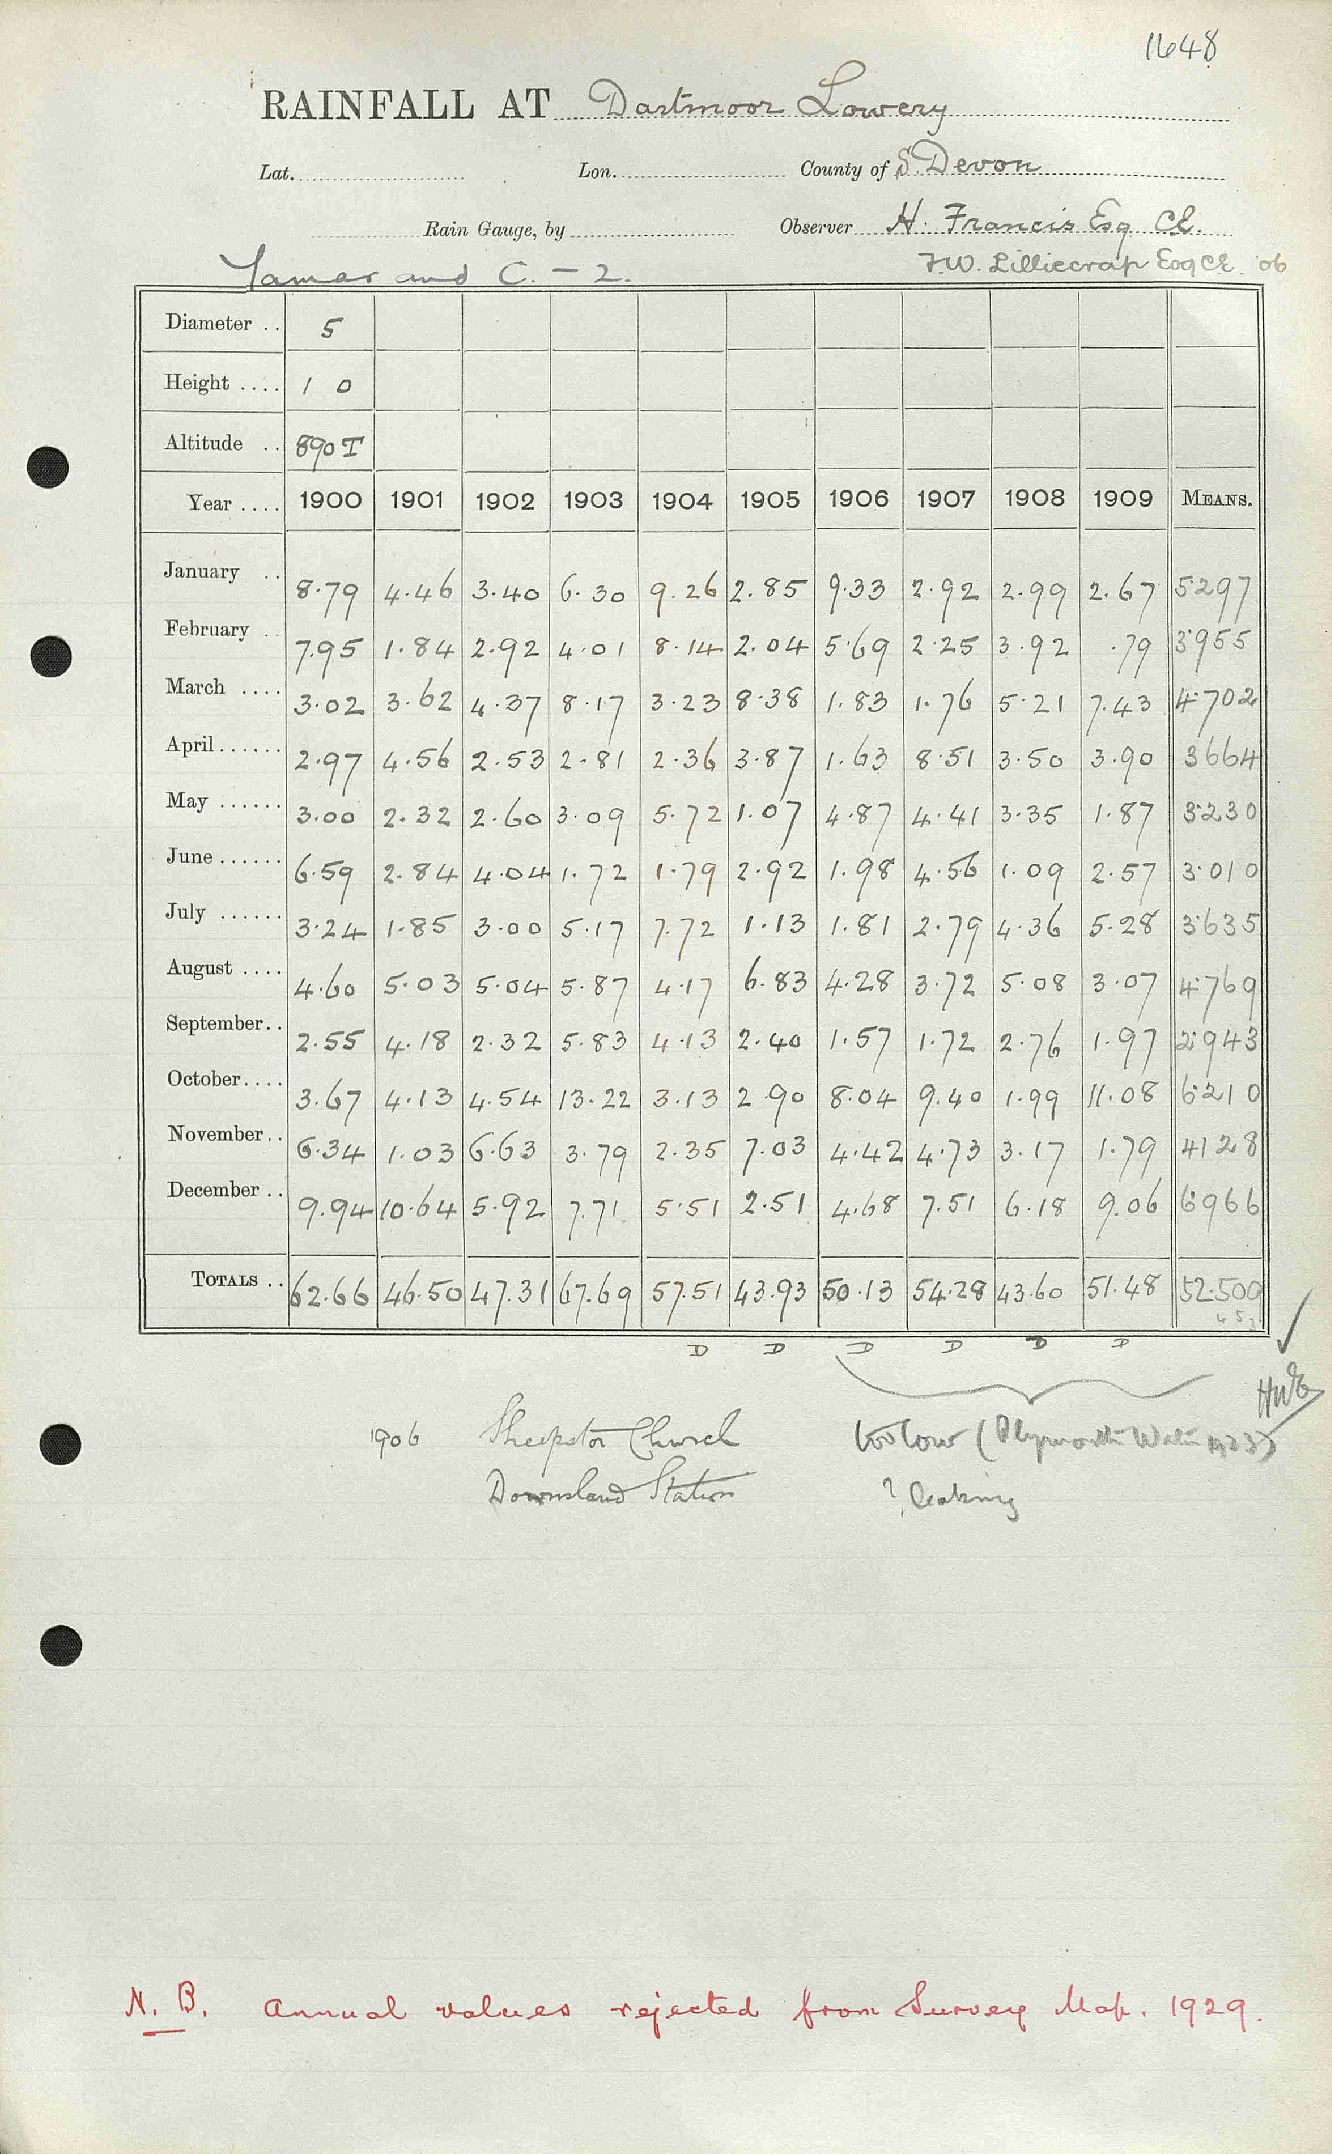 1648
RAINFALL AT Dartmoor Lowery
Lat. Lon. County of S. Devon
Rain Gauge, by Observer H. Francis Esq CE.
Tamar and C. - 2. F.W. Lilliecrap Esq CE '06
Diameter .. 5
Height .... 1 0
Altitude .. 890 T
Year .... 1900 1901 1902 1903 1904 1905 1906 1907 1908 1909 MEANS.
January .. 8.79 4.46 3.40 6.30 9.26 2.85 9.33 2.92 2.99 2.67 5297
February .. 7.95 1.84 2.92 4.01 8.14 2.04 5.69 2.25 3.92 .79 3.955
March .... 3.02 3.62 4.37 8.17 3.23 8.38 1.83 1.76 5.21 7.43 4.702
April ...... 2.97 4.56 2.53 2.81 2.36 3.87 1.63 8.51 3.50 3.90 3664
May ...... 3.00 2.32 2.60 3.09 5.72 1.07 4.87 4.41 3.35 1.87 3.230
June ...... 6.59 2.84 4.04 1.72 1.79 2.92 1.98 4.56 1.09 2.57 3.010
July ...... 3.24 1.85 3.00 5.17 7.72 1.13 1.81 2.79 4.36 5.28 3.635
August .... 4.60 5.03 5.04 5.87 4.17 6.83 4.28 3.72 5.08 3.07 4.769
September .. 2.55 4.18 2.32 5.83 4.13 2.40 1.57 1.72 2.76 1.97 2.943
October .... 3.67 4.13 4.54 13.22 3.13 2.90 8.04 9.40 1.99 11.08 6.210
November .. 6.34 1.03 6.63 3.79 2.35 7.03 4.42 4.73 3.17 1.79 4128
December .. 9.94 10.64 5.92 7.71 5.51 2.51 4.68 7.51 6.18 9.06 6.966
TOTALS .. 62.66 46.50 47.31 67.69 57.51 43.93 50.13 54.28 43.60 51.48 52.500
D D D D D D
1906 Sheepstor Church too low (Plymouth Water 1923)
Downsland Station ? leaking
N. B. Annual values rejected from Survey Map. 1929.